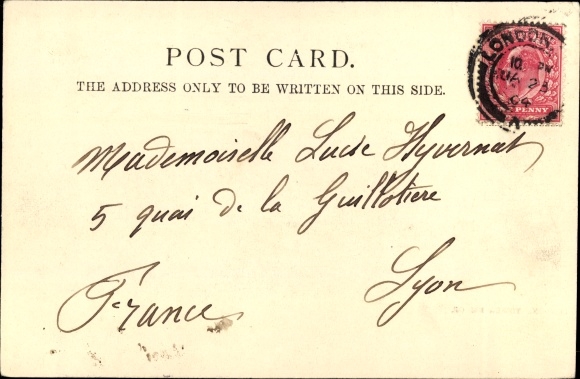 POST CARD.
THE ADDRESS ONLY TO BE WRITTEN ON THIS SIDE.
LONDON
PENNY
Mademoiselle Lucie Hyvernat
5 quai de la Guillotière
Lyon
France